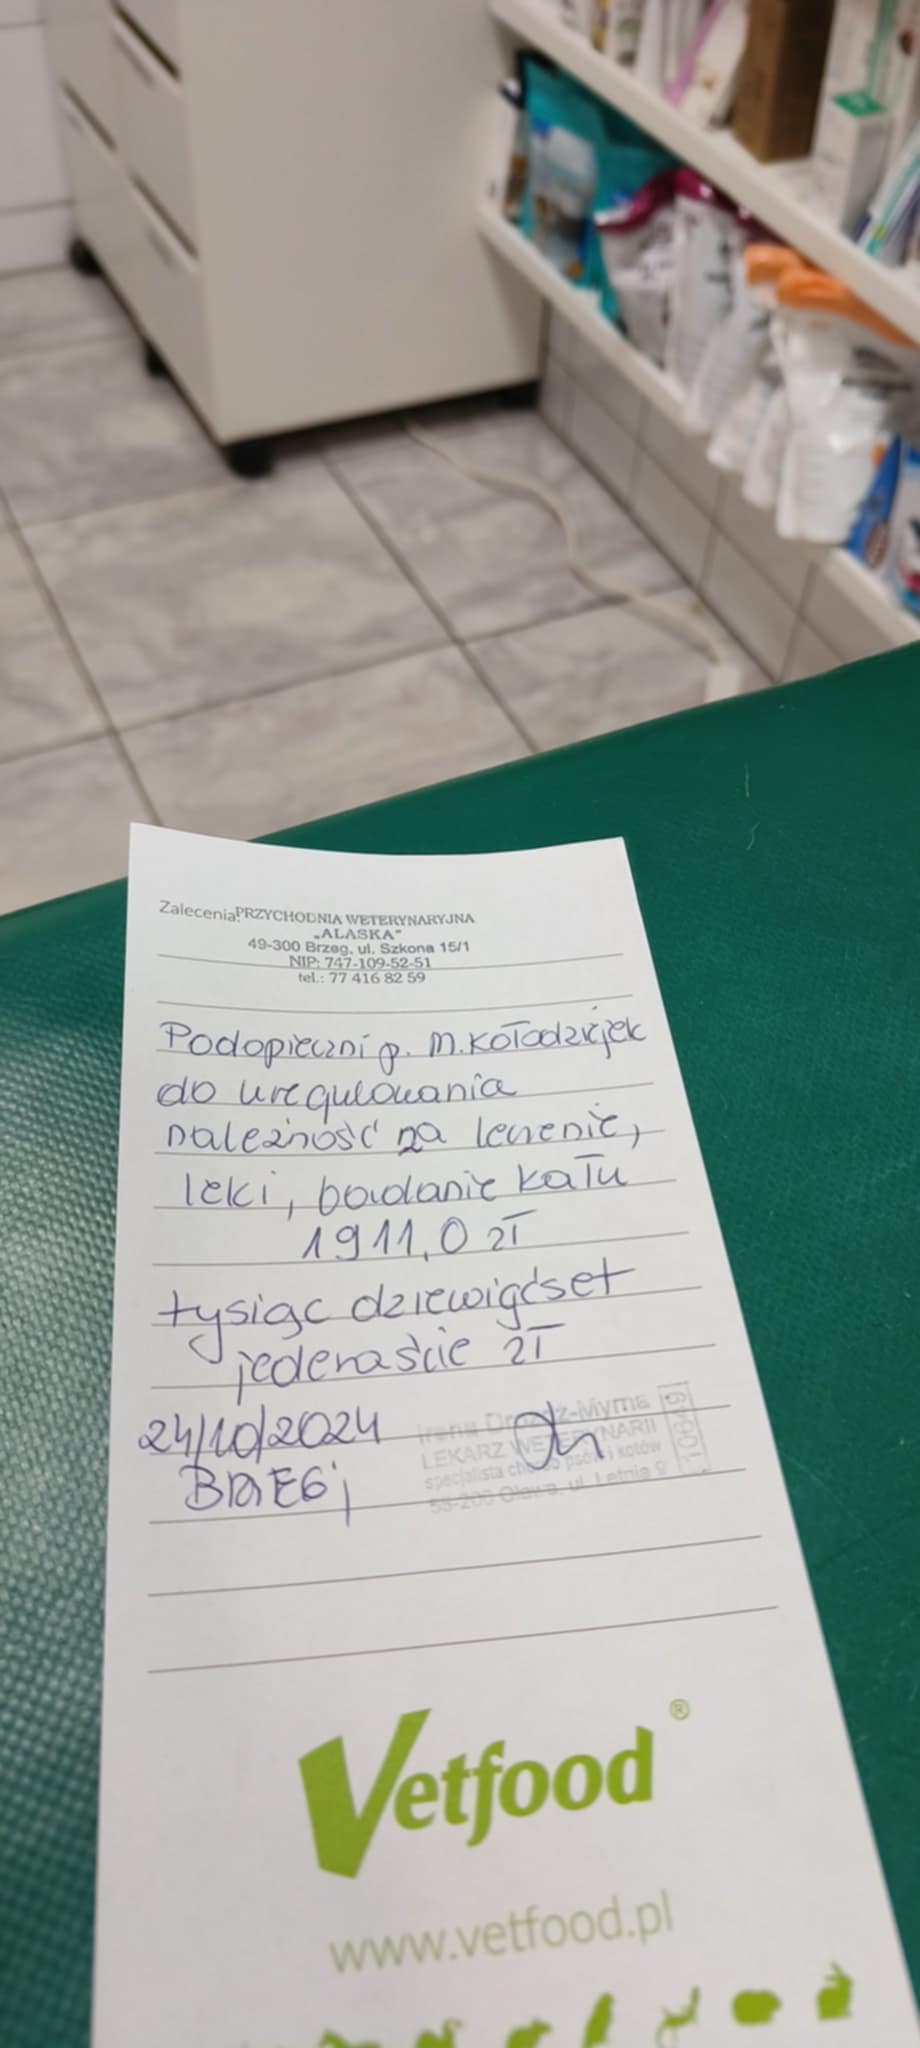 Zalecenia:
PRZYCHODNIA WETERYNARYJNA
„ALASKA"
49-300 Brzeg, ul. Szkona 15/1
NIP: 747-109-52-51
tel.: 77 416 82 59
Podopieczni p. M. Kołodziejek
do uregulowania
należność za leczenie,
leki, badanie kału
1911,0 zł
tysiąc dziewięćset
jedenaście zł
24/10/2024
BRZEG;
Irena
-Myrna
LEKARZ WETERYNARII
specjalista psów i kotów
ul. Letnia 9
Vetfood®
www.vetfood.pl